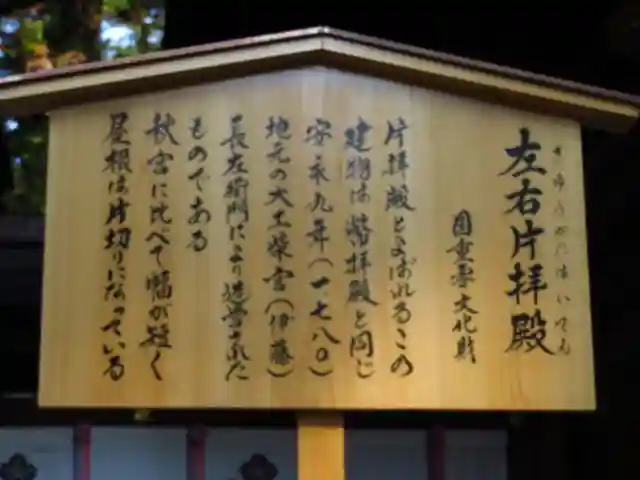 さゆうかたはいでん
左右片拝殿
国重要文化財
片拝殿とよばれるこの
建物は幣拝殿と同じ
安永九年(一七八〇)
地元の大工柴宮(伊藤)
長左衛門により造営された
ものである
秋宮に比べて幅が短く
屋根は片切りになっている